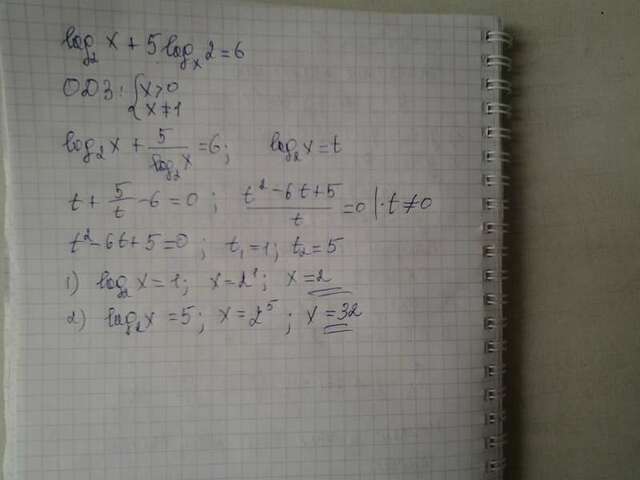 log₂x + 5log_x2 = 6
ОДЗ: {x>0
x≠1
log₂x + 5/log₂x = 6; log₂x = t
t + 5/t - 6 = 0; (t² - 6t + 5)/t = 0 | · t ≠ 0
t² - 6t + 5 = 0; t₁ = 1; t₂ = 5
1) log₂x = 1; x = 2¹; x = 2
2) log₂x = 5; x = 2⁵; x = 32